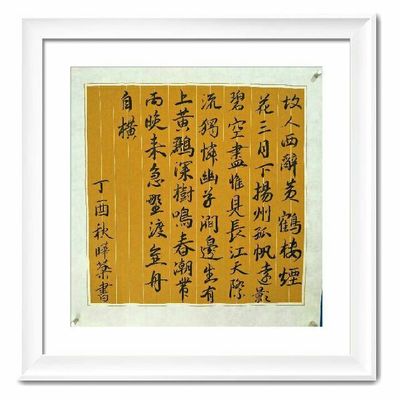 故人西辭黄鶴楼煙
花三月下揚州孤帆遠影
碧空盡惟見長江天際
流獨憐幽草澗邊生有
上黄鸝深樹鳴春潮帶
雨晚来急野渡無舟
自横
丁酉秋書